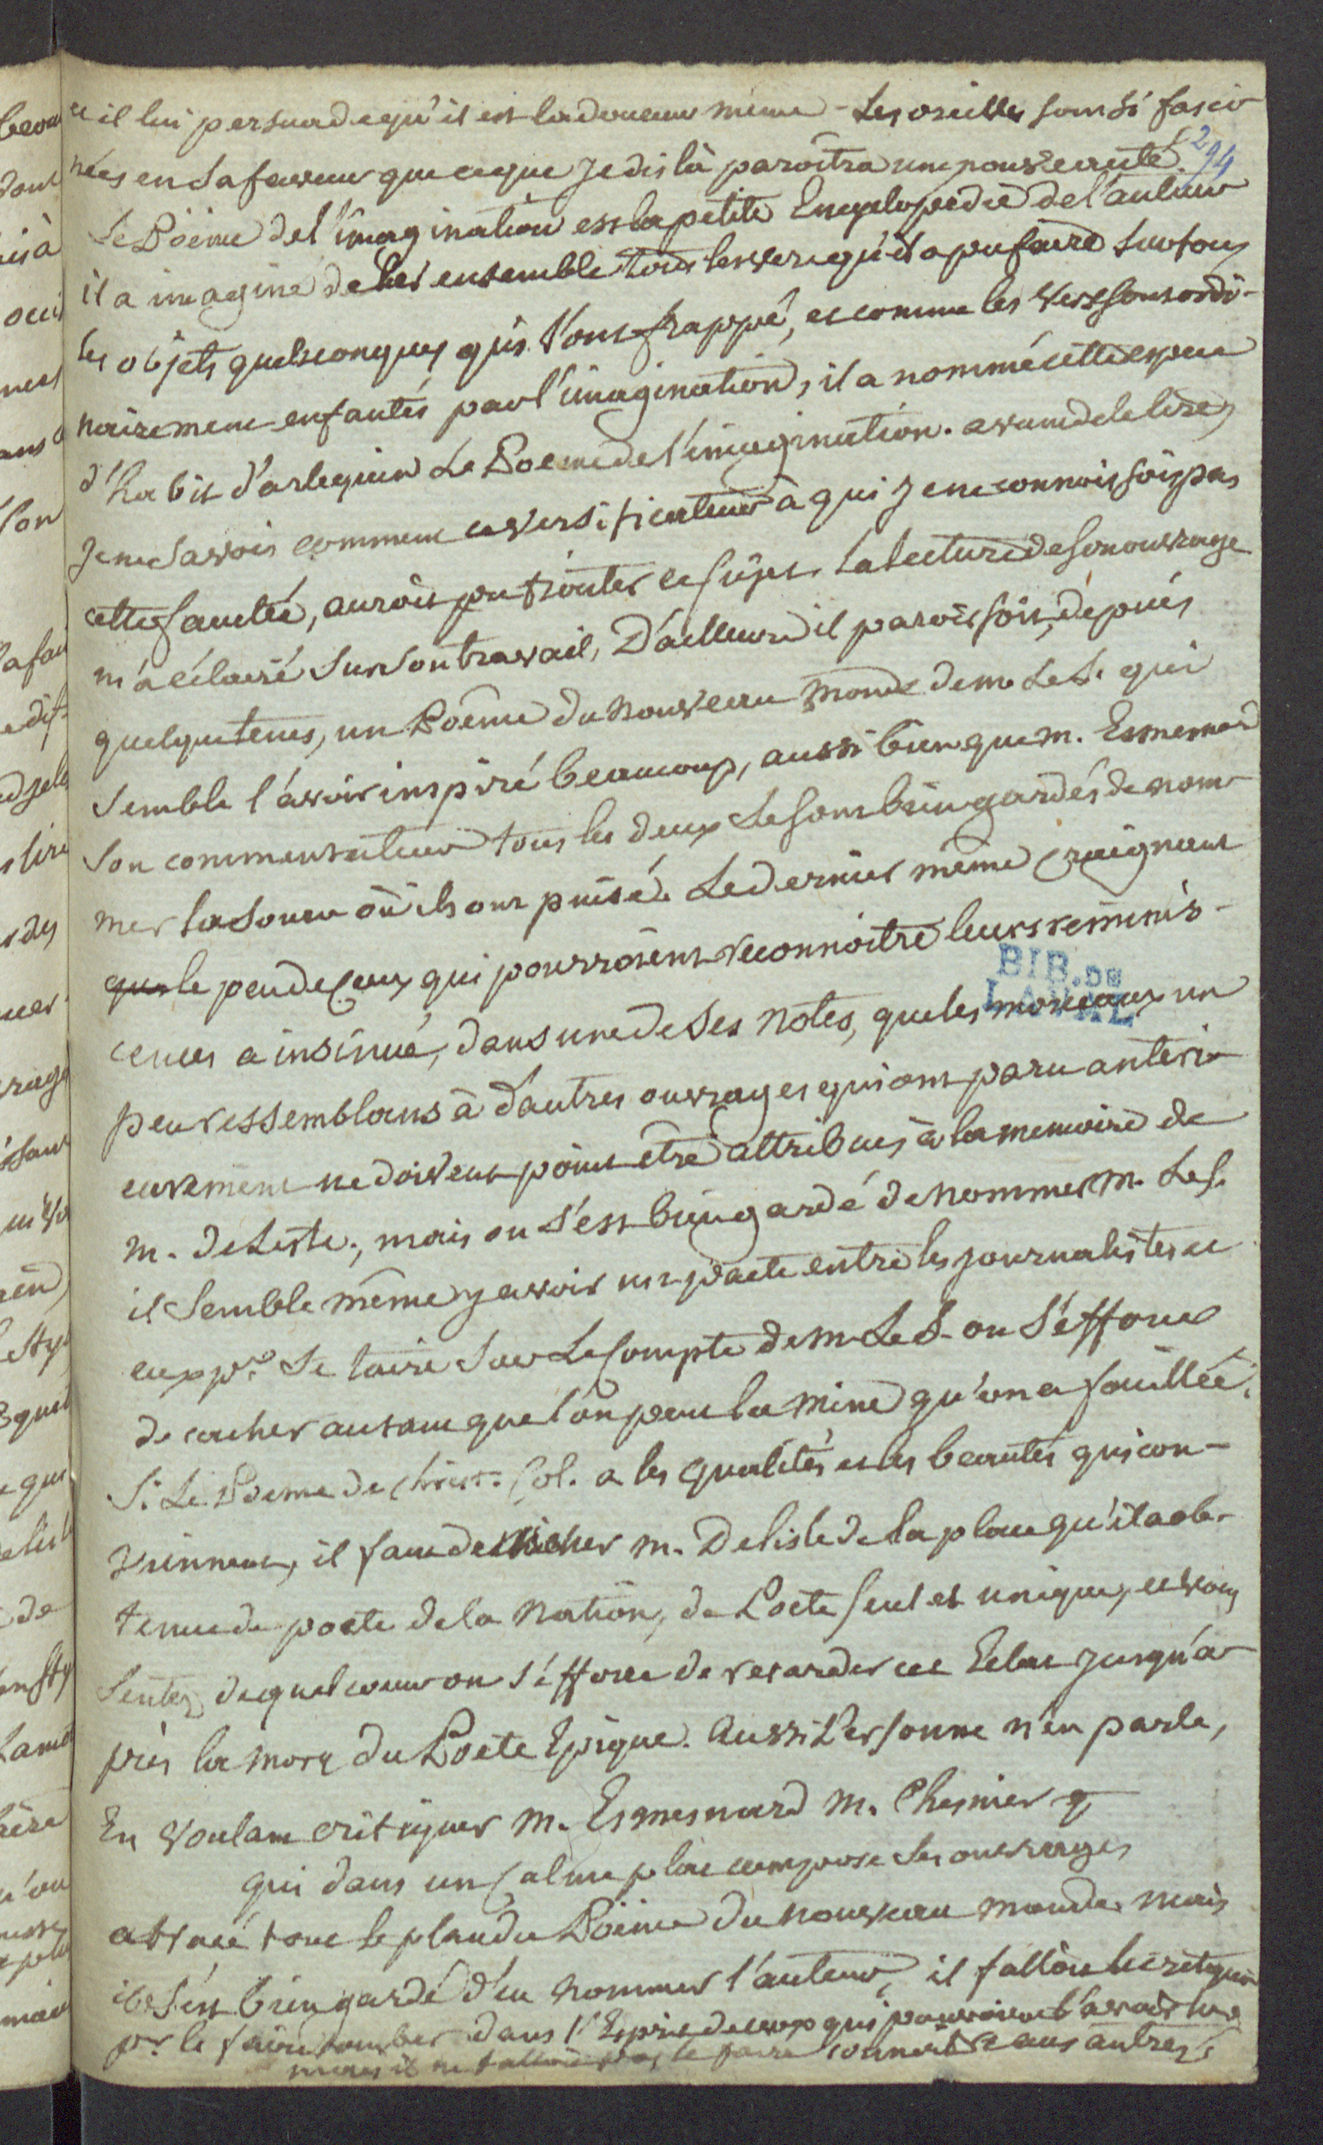 et il lui persuade qu'il est la douceur même - Les oreilles sont si fasci
nées en sa faveur que ce que je dis là paroîtra un pouvre conte.
294
Le Poëme de l'imagination est la petite Encyclopedie de l'auteur
il a imaginé de lier ensemble tous les vers qu'il a pu faire sur tous
les objets quelconques qui l'ont frappé, et comme les vers sont ordi-
nairement enfantés par l'imagination, il a nommé cette espece
d'habit d'arlequin Le Poeme de l'imagination. avant de le lire,
Je ne savois comment ce versificateur à qui je ne connoissois pas
cette faculté, auroit pu traiter ce sujet. La lecture de son ouvrage
m'a éclairé sur son travail, D'ailleurs il paroissoit, depuis
quelque tems, un Poême du nouveau monde de m. Le S. qui
semble l'avoir inspiré beaucoup, aussi bien que m. Esmenard
son commentateur tous les deux se sont bien gardés de nom
mer la source où ils ont puisé. Le dernier même craignant
que le peu de ceux qui pourroient reconnoitre leurs réminis-
cences a insinué, dans une de ses notes, que les morceaux un
peu ressemblans à d'autres ouvrages qui ont paru anteri
eurement ne doivent point être attribués à la memoire de
m. de Lisle; mais on s'est bien gardé de nommer m. Le S.
il semble même y avoir un pacte entre les journalistes et
eux pr. se taire sur Le compte de m Le S. on s'efforce
de cacher autant que l'on peut la mine qu'on a fouillée.
Si Le Poeme de Christ. Col. a les qualités et les beautés qui con-
viennent, il faut denicher m. Delisle de la place qu'il a ob-
tenue de poete de la Nation, de Poete seul et unique, et vous
sentez de quel coeur on s'efforce de retarder cet Eclat jusqu'a
près la mort du Poete Epique. Aussi Personne n'en parle,
En voulant critiquer m. Esmesnard m. Chesnier
qui dans un calme plat compose ses ouvrages
a tracé tout le plan du Poëme du nouveau monde. mais
il s'est bien gardé d'en nommer l'auteur, il falloit le critiquer
pr. le faire tomber dans l'Esprit de ceux qui pouvoient l'avoir lu
mais il ne falloit pas le faire connoitre aux autres.
BIB. DE
LAVAL